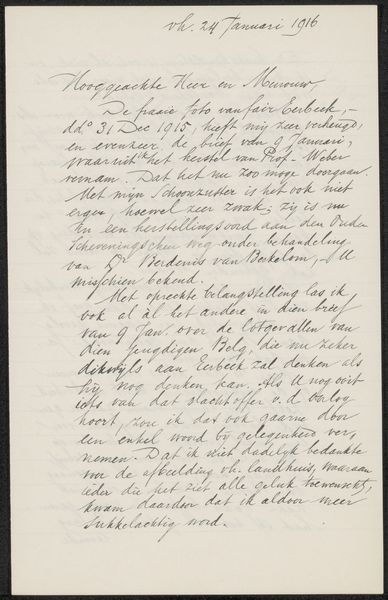 vh. 24 Januari 1916
Hooggeachte Heer en Mevrouw,
De fraaie foto van fair Eerbeek, –
dd° 31 Dec 1915, heeft mij zeer verheugd,
en evenzeer de brief van 9 Januari,
waaruit ik het herstel van Prof. Wiber
vernam. Dat het nu zoo moge doorgaan.
Met mijn Schoonzuster is het ook niet
erger, hoewel zeer zwak; zij is nu
in een herstellingsoord aan den Ouden
Scheveningschen weg onder behandeling
van Dr Berdenis van Berlekom, U
misschien bekend.
Met oprechte belangstelling las ik
ook al àl het andere in dien brief
van 9 Jan. over de lotgevallen van
dien jeugdigen Belg, die nu zeker
dikwijls aan Eerbeek zal denken als
hij nog denken kan. Als U nog ooit
iets van dat slachtoffer v. d. oorlog
hoort, zou ik dat ook gaarne door
een enkel woord bij gelegenheid ver-
nemen. Dat ik niet dadelijk bedankte
voor de afbeelding vh. Landhuis, waaraan
ieder die het ziet alle geluk toewenscht,
kwam daardoor dat ik aldoor meer
sukkelachtig word.